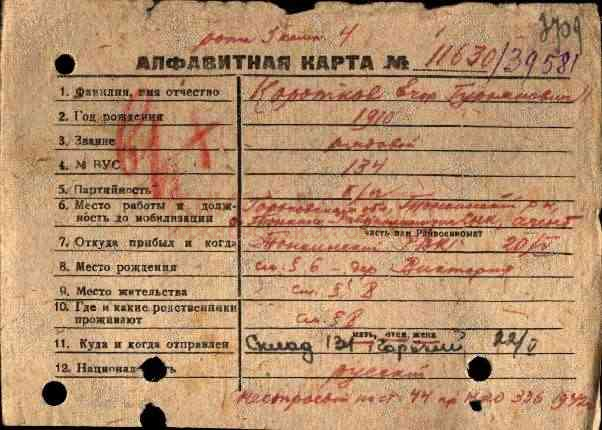 3709
роты 5 4
АЛФАВИТНАЯ КАРТА № 11630/39581
1. Фамилия, имя отчество Коротков Егор
2. Год рождения 1910
3. Звание рядовой
4. № ВУС 134
5. Партийность б/п
6. Место работы и долж-
ность до мобилизации Тонкинский р-н агент
часть или Райвоенкомат
7. Откуда прибыл и когда Тонкинский РВК 20/IV
8. Место рождения см. § 6 – дер. Викторка
9. Место жительства см. § 8
10. Где и какие родственники
проживают см. § 8
мать, отец, жена
11. Куда и когда отправлен Склад 131 22/V
12. Национальность русский
ст. 44 пр НКО 336 1942